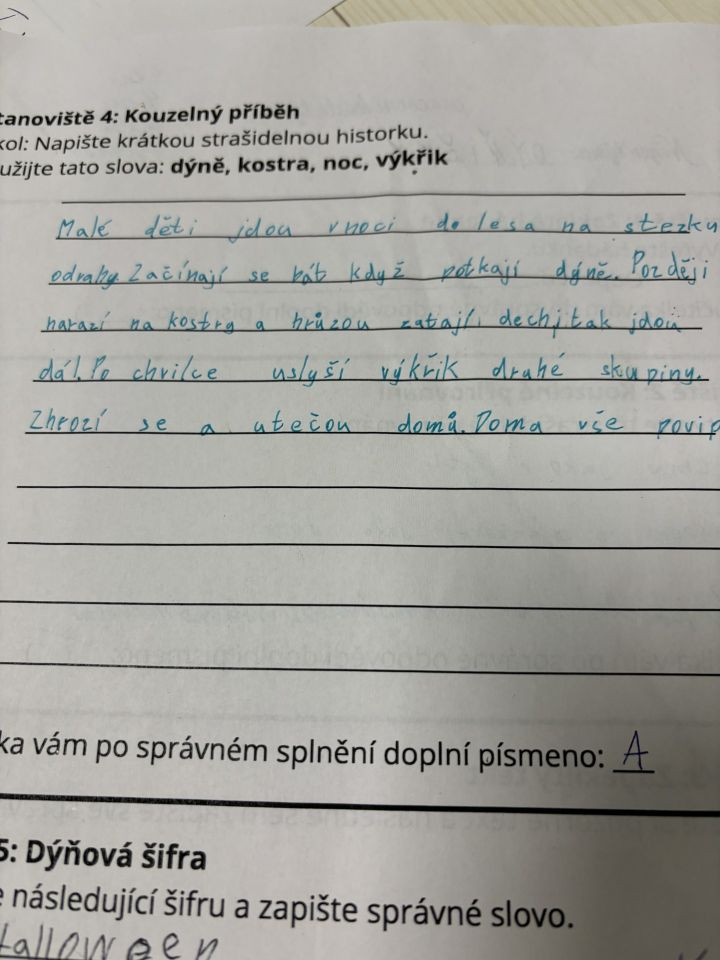 tanoviště 4: Kouzelný příběh
kol: Napište krátkou strašidelnou historku.
užijte tato slova: dýně, kostra, noc, výkřik
Malé děti jdou vnoci do lesa na stezku
odvahy. Začínají se bát když potkají dýně. Později
narazí na kostry a hrůzou zatají dech, tak jdou
dál. Po chvilce uslyší výkřik druhé skupiny.
Zhrozí se a utečou domů. Doma vše povip
ka vám po správném splnění doplní písmeno: A
5: Dýňová šifra
e následující šifru a zapište správné slovo.
Halloween